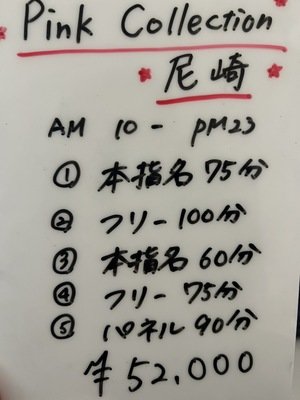 Pink Collection
尼崎
AM 10 - PM23
① 本指名 75分
② フリー 100分
③ 本指名 60分
④ フリー 75分
⑤ パネル 90分
¥52,000